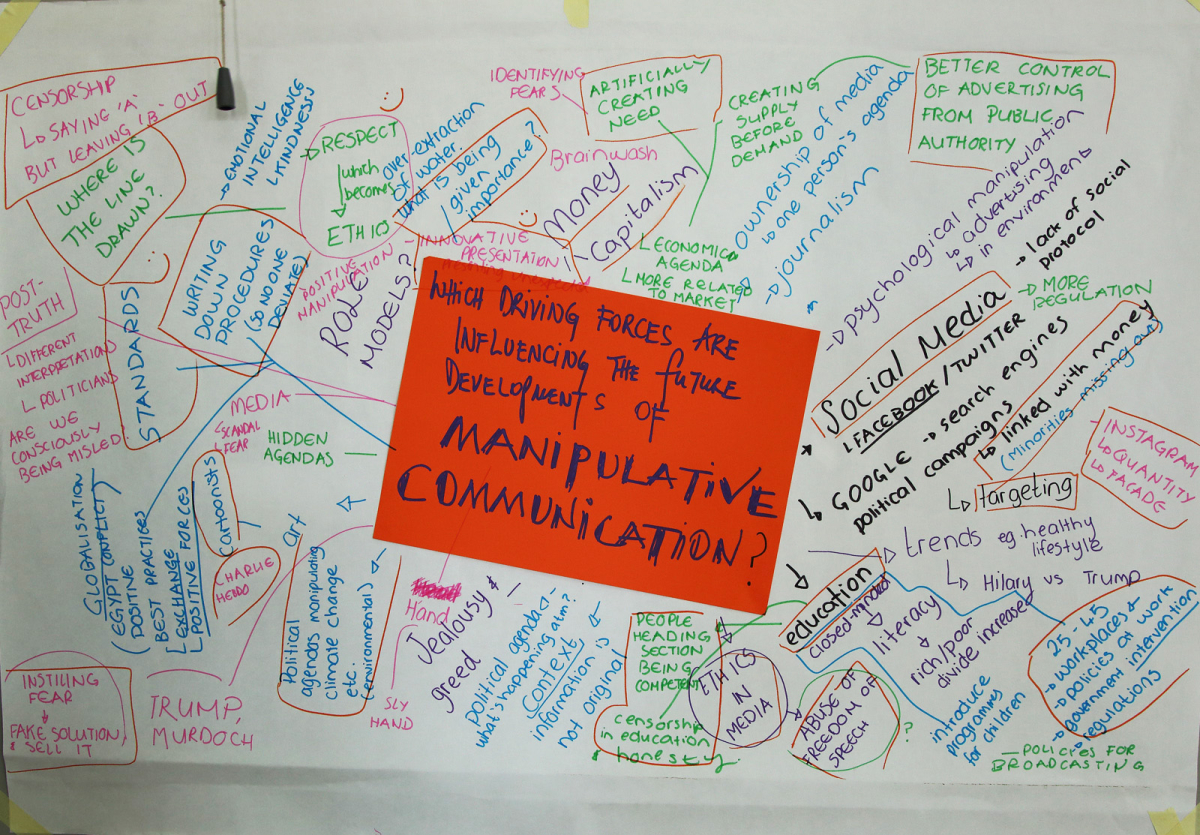 WHICH DRIVING FORCES ARE
INFLUENCING THE FUTURE
DEVELOPMENTS OF
MANIPULATIVE
COMMUNICATION?
CENSORSHIP
↳ SAYING 'A'
BUT LEAVING 'B' OUT
WHERE IS
THE LINE
DRAWN?
→ EMOTIONAL
INTELLIGENCE
↳ KINDNESS
→ RESPECT
which
becomes
ETHICS
over-extraction
of water.
what is being
given
importance?
IDENTIFYING
FEARS
ARTIFICIALLY
CREATING
NEED
CREATING
SUPPLY
BEFORE
DEMAND
BETTER CONTROL
OF ADVERTISING
FROM PUBLIC
AUTHORITY
Brainwash
Money
Capitalism
→ ownership of media
↳ one person's agenda
→ journalism
→ psychological manipulation
↳ advertising
↳ in environments
→ lack of social
protocol
↳ ECONOMIC
AGENDA
↳ MORE RELATED
TO MARKET
- INNOVATIVE
PRESENTATION
POSITIVE
MANIPULATION
ROLE
MODELS?
WRITING
DOWN
PROCEDURES
(SO NO ONE
DEVIATE)
STANDARDS
POST-
TRUTH
↳ DIFFERENT
INTERPRETATIONS
↳ POLITICIANS
ARE WE
CONSCIOUSLY
BEING MISLED
MEDIA
↳ SCANDAL
↳ FEAR
HIDDEN
AGENDAS
Social Media
→ MORE
REGULATION
↳ FACEBOOK / TWITTER
↳ GOOGLE → search engines
political campaigns
↳ linked with money
(Minorities missing out)
↳ targeting
INSTAGRAM
↳ QUANTITY
↳ FACADE
GLOBALISATION
(EGYPT CONFLICT)
(POSITIVE
BEST PRACTICES
[EXCHANGE
POSITIVE FORCES
cartoonists
CHARLIE
HEBDO
art
Political
agendas manipulating
climate change
etc.
(environmental)
INSTILING
FEAR
↓
FAKE SOLUTION,
& SELL IT
TRUMP,
MURDOCH
Hand
SLY
HAND
Jealousy &
greed
political agenda? -
what's happening aim?
Context
information is
not original
PEOPLE
HEADING
SECTION
BEING
COMPETENT
censorship
in education
& honesty
ETHICS
IN
MEDIA
ABUSE OF
FREEDOM OF
SPEECH
?
education
closed-minded
literacy
rich/poor
divide increased
trends eg. healthy
lifestyle
↳ Hilary vs Trump
introduce
programmes
for children
25-45
→ workplaces
→ policies at work
→ government intervention
→ regulations
- POLICIES FOR
BROADCASTING